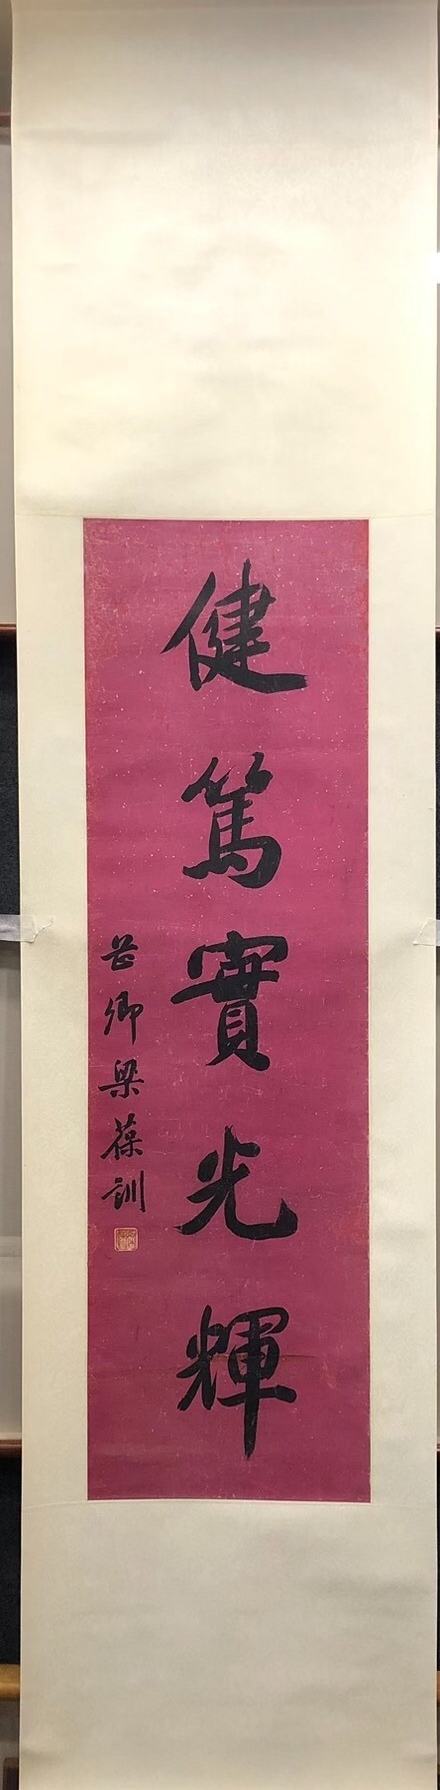 健篤實光輝
芸卿梁葆訓